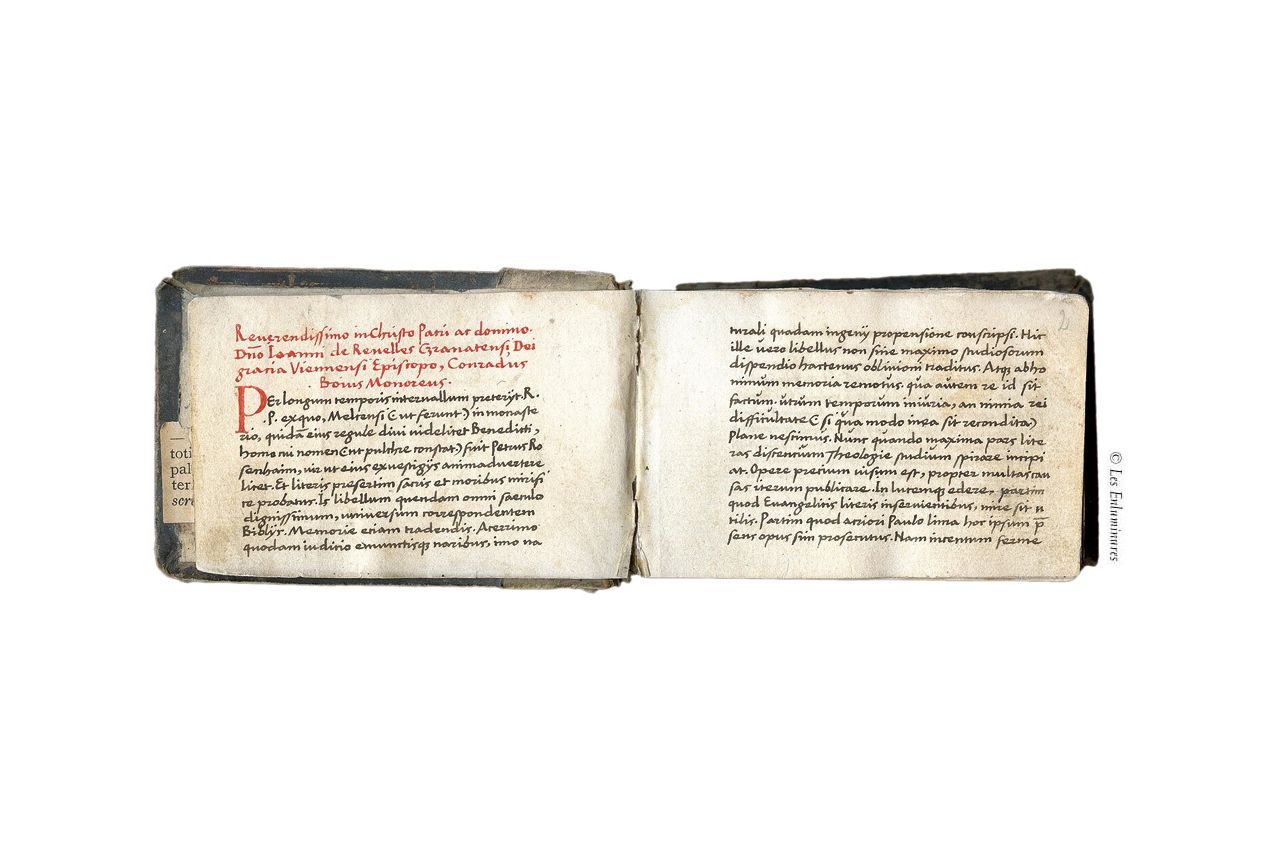 Reverendissimo in Christo Patri ac domino.
Dño Ioanni de Revelles Granatensi, Dei
gracia Viennensi Episcopo, Conradus
. Bovis Monoreus.
PEr longum temporis intervallum preterijt R.
.P. ex quo, Melcensi (ut ferunt) in monaste
rio, quidã eius regule divi videlicet Benedicti,
homo cui nomen (ut pulchre constat) fuit Petrus Ro
senhaim, vir ut eius ex vestigijs animadvertere
licet. Et literis presertim sacris et moribus mirifi
ce probatus. Is libellum quendam omni saeculo
dignissimum, universum correspondentem
Biblijs. Memorie eciam tradendis. Acerrimo
quodam iudicio emunctisq naribus, imo na
2
turali quadam ingenij propensione conscripsi. Hic
ille vero libellus non sine maximo studiosorum
dispendio hactenus oblivioni traditus. Atq ab ho
minum memoria remotus. qua autem re id sit
factum. utrum temporum iniuria, an nimia rei
difficultate (si qua modo inea sit recondita)
Plane nescimus. Nunc quando maxima pars lite
ras discentium Theologie studium spirare incipi
at. Opere precium visum est, propter multas cau
sas iterum publicare. In lucemque edere, partim
quod Evangelicis literis inservientibus, mire sit u
tilis. Partim quod acriori Paulo lima hoc ipsum p̄
sens opus sim prosecutus. Nam incentum ferme
toti
pal
ter
scre
© Les Enluminures